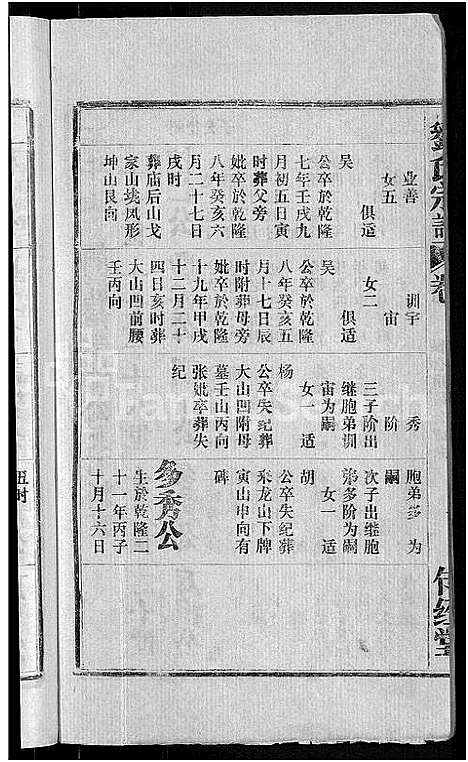 氏宗譜
卷
業善
女五
俱适
吴
公卒於乾隆
七年壬戌九
月初五日寅
时葬父旁
妣卒於乾隆
八年癸亥六
月二十七日
戌时
葬庙后山戈
家山姚凤形
坤山艮向
训宇
宙
女二
俱适
吴
公卒於乾隆
八年癸亥五
月十七日辰
时附葬母旁
妣卒於乾隆
十九年甲戌
十二月二十
四日亥时葬
大山凹前腰
壬丙向
秀
阶
三子阶出
继胞弟训
宙为嗣
女一适
杨
公卒失纪葬
大山凹附母
墓壬山丙向
张妣卒葬失
纪
胞弟多为
嗣
次子出继胞
弟多阶为嗣
女一适
胡
公卒失纪葬
来龙山下牌
寅山申向有
碑
多秀公
生於乾隆二
十一年丙子
十月十六日